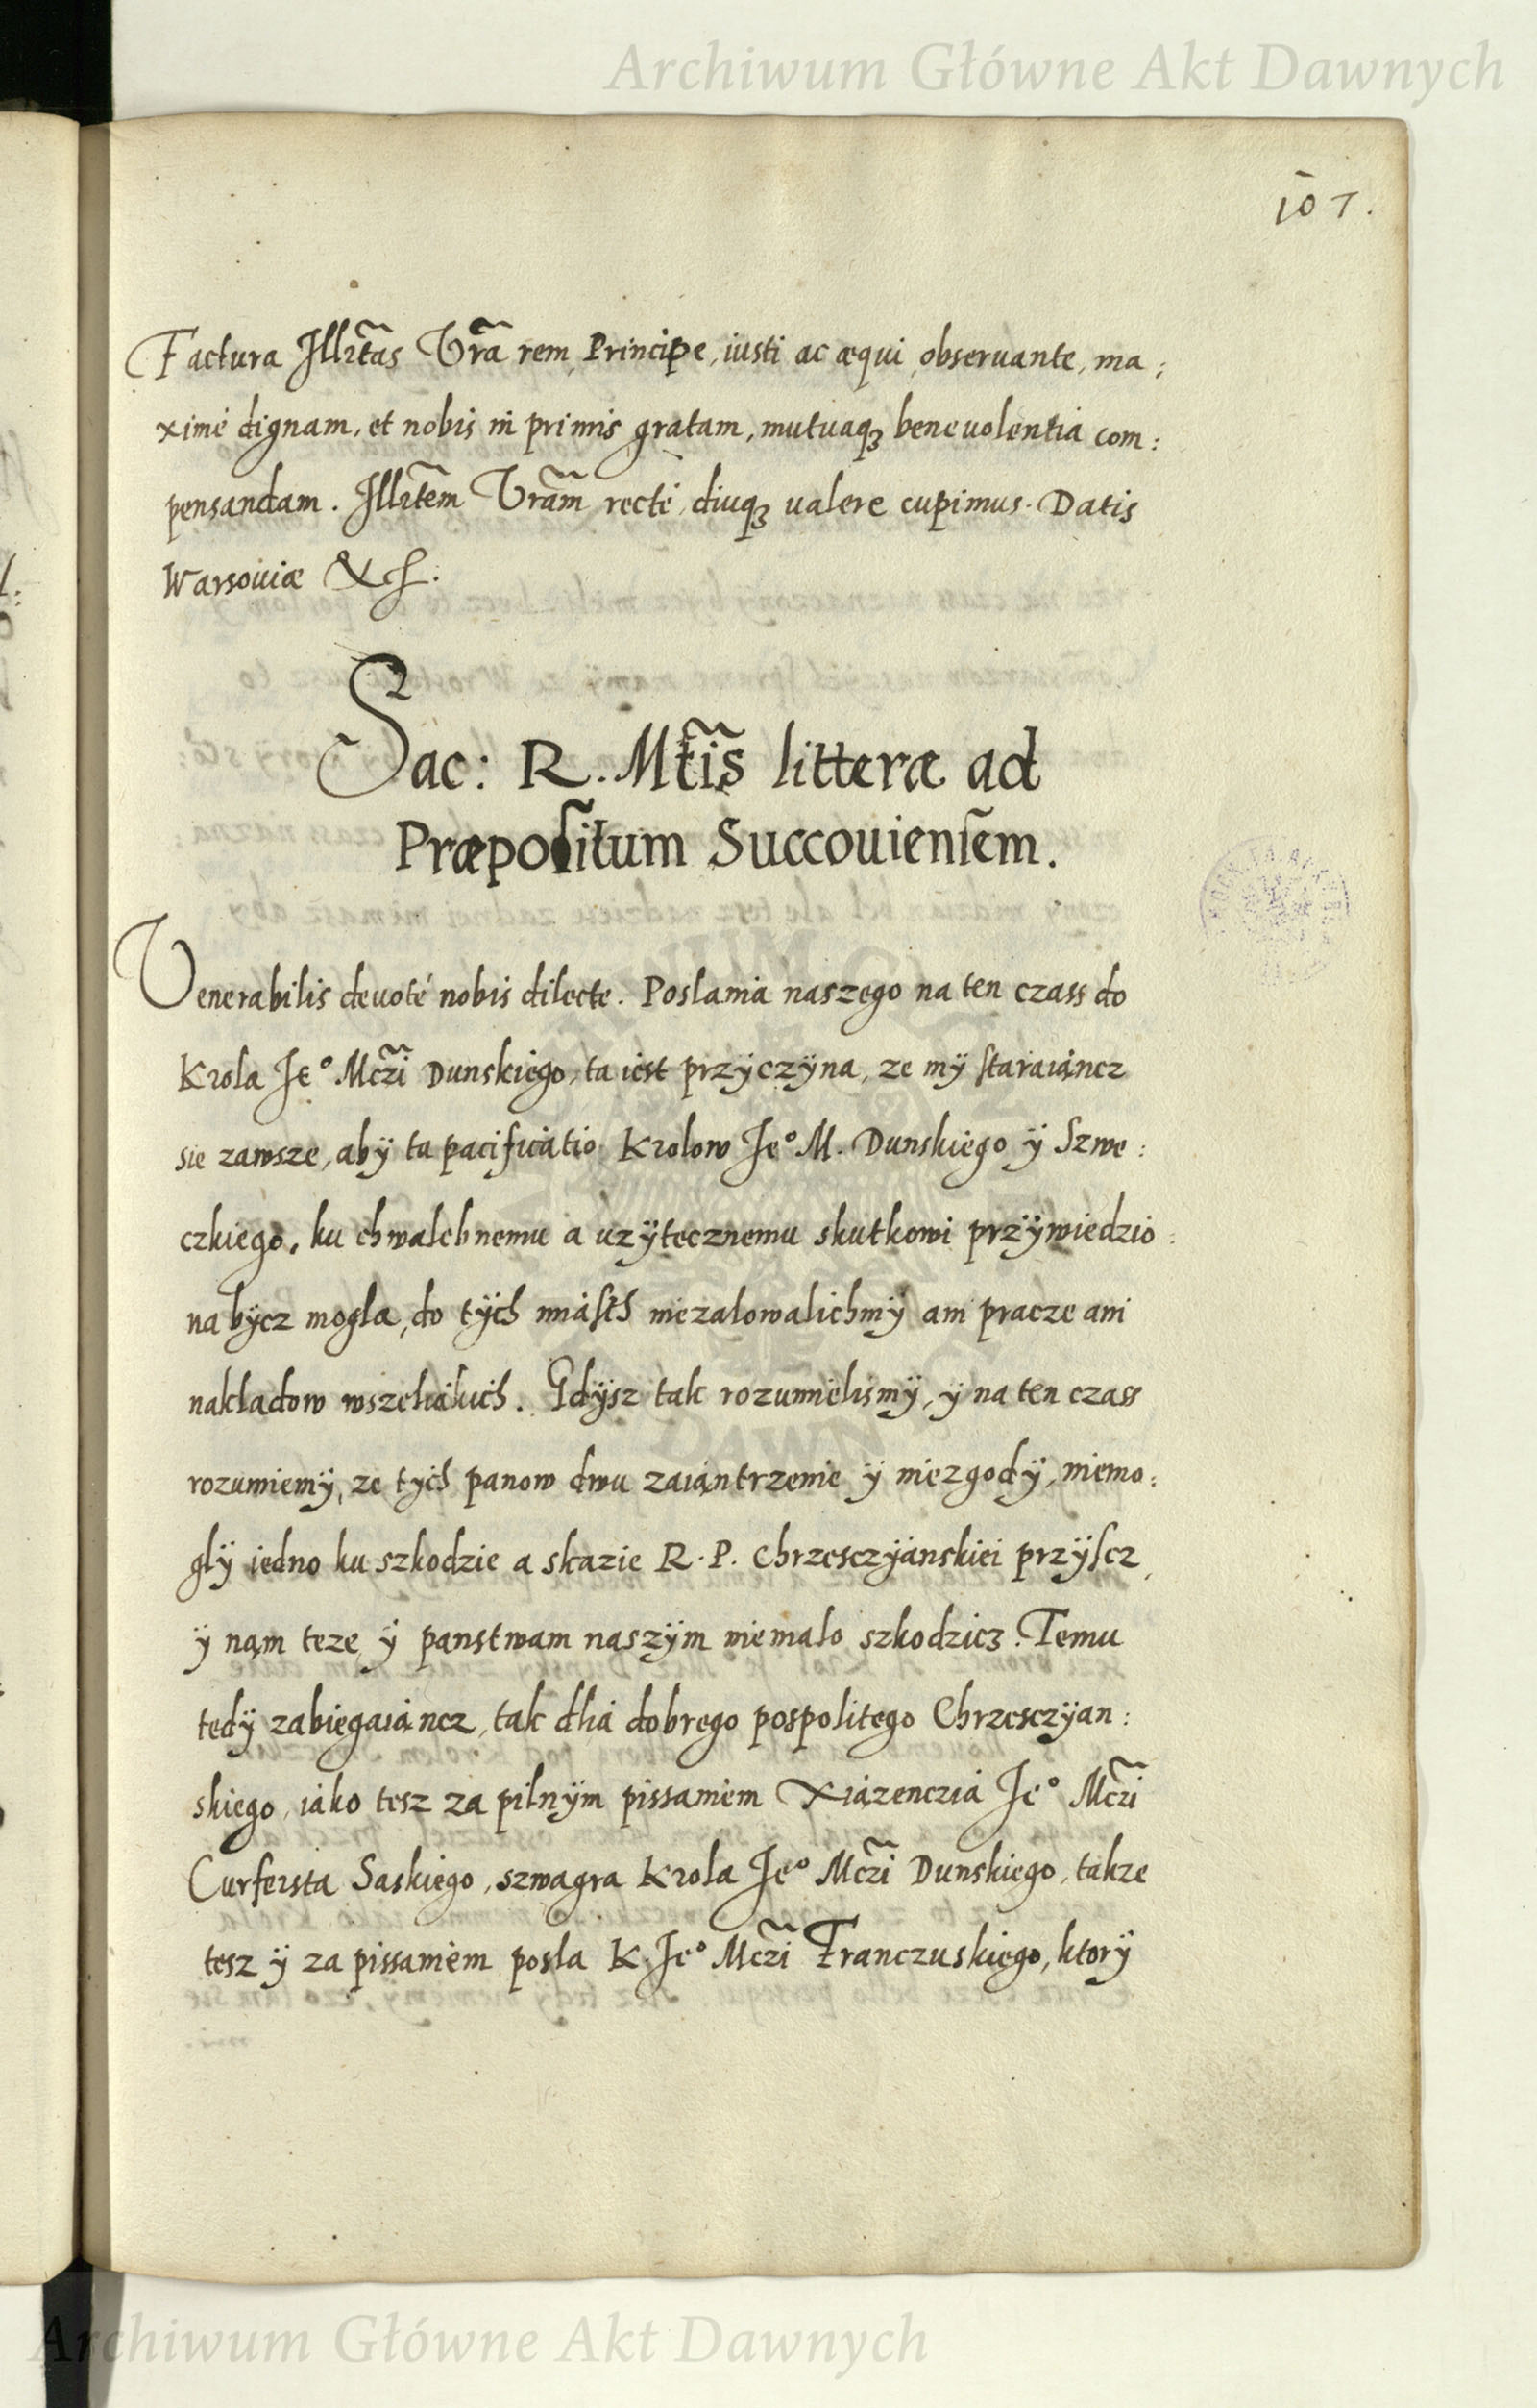 Archiwum Główne Akt Dawnych
107.
Factura Illrẽtas Vrã rem, Principe, iusti ac æqui, obseruante, ma:
ximé dignam, et nobis in primis gratam, mutuaqꝫ beneuolentia com:
pensandam. Illrẽtem Vrãm recté, diuqꝫ ualere cupimus. Datis
Warsouiæ
Sac: R. Mt̃is litteræ ad
Præpositum Succouiensem.
Venerabilis deuoté nobis dilecte. Poslania naszego na ten czass do
Krola Je° Mc̃zi Dunskiego, ta iest przÿczÿna, ze mÿ staraiąncz
sie zawsze, abÿ ta pacificatio Krolow Je° M. Dunskiego ÿ Szwe:
czkiego, ku chwalebnemu a uzÿtecznemu skutkowi przÿwiedzio:
na bÿcz mogla, do tÿch miasth niezalowalichmÿ ani pracze ani
nakladow wszeliakich. Gdÿsz tak rozumielismÿ, ÿ na ten czass
rozumiemÿ, ze tÿch panow dwu zaiąntrzenie ÿ niezgodÿ, niemo:
glÿ iedno ku szkodzie a skazie R. P. Chrzesczÿanskiei przÿscz,
ÿ nąm teze ÿ panstwam naszÿm niemalo szkodzicz. Temu
tedÿ zabiegaiąncz, tak dlia dobrego pospolitego Chrzesczÿan:
skiego, iako tesz za pilnÿm pissaniem Xiązenczia Je° Mc̃zi
Curfersta Saskiego, szwagra Krola Je° Mc̃zi Dunskiego, takze
tesz ÿ za pissaniem posla K. Je° Mc̃zi Franczuskiego, ktorÿ
Archiwum Główne Akt Dawnych